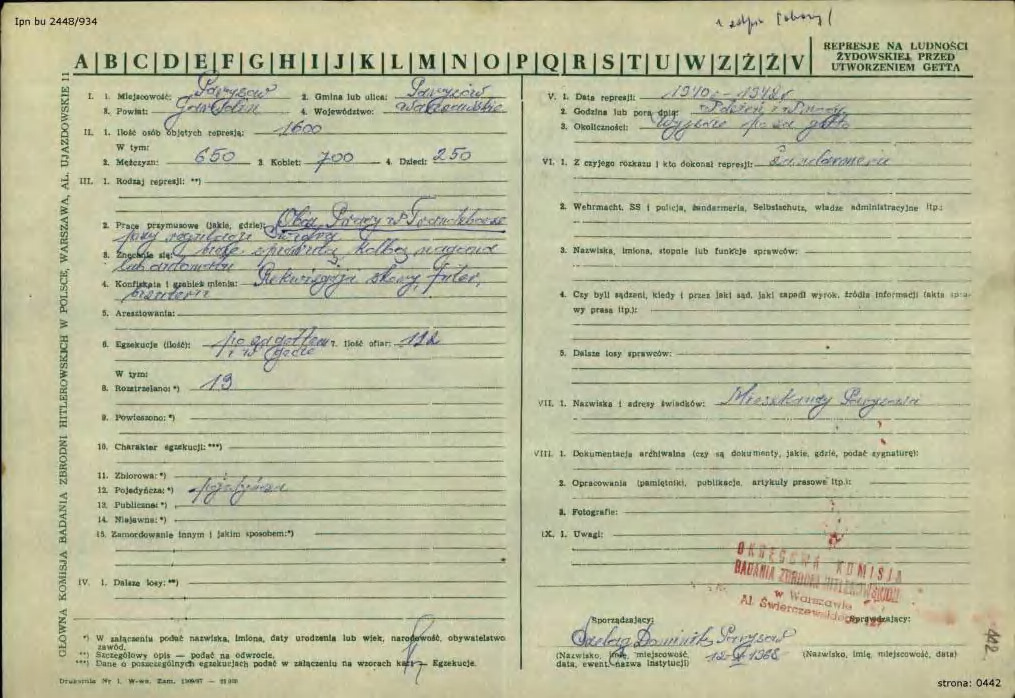 Ipn bu 2448/934
A B C D E F G H I J K L M N O P Q R S T U W Z Ź Ż V
REPRESJE NA LUDNOŚCI
ŻYDOWSKIEJ PRZED
UTWORZENIEM GETTA
GŁÓWNA KOMISJA BADANIA ZBRODNI HITLEROWSKICH W POLSCE, WARSZAWA, AL. UJAZDOWSKIE 11
I. 1. Miejscowość: Parysów 2. Gmina lub ulica: Parysów
3. Powiat: Garwolin 4. Województwo: Warszawskie
II. 1. Ilość osób objętych represją: 1600
W tym:
2. Mężczyzn: 650 3. Kobiet: 700 4. Dzieci: 250
III. 1. Rodzaj represji: **)
2. Prace przymusowe (jakie, gdzie): Obóz Pracy w
przy regulacji
3. Znęcanie się:
4. Konfiskata i grabież mienia: Rekwizycja skóry, futer,
5. Aresztowania:
6. Egzekucje (ilość): 7. Ilość ofiar: 112
W tym:
8. Rozstrzelano: *) 19
9. Powieszono: *)
10. Charakter egzekucji: ***)
11. Zbiorowa: *)
12. Pojedyńcza: *) pojedyńcza
13. Publiczna: *)
14. Niejawna: *)
15. Zamordowanie innym i jakim sposobem: *)
IV. 1. Dalsze losy: **)
*) W załączeniu podać nazwiska, imiona, daty urodzenia lub wiek, narodowość, obywatelstwo
zawód.
**) Szczegółowy opis — podać na odwrocie.
***) Dane o poszczególnych egzekucjach podać w załączeniu na wzorach kart — Egzekucje.
V. 1. Data represji: 1940r - 1942r
2. Godzina lub pora dnia: w dzień i w nocy
3. Okoliczności: Wyjście poza getto
VI. 1. Z czyjego rozkazu i kto dokonał represji: Żandarmeria
2. Wehrmacht, SS i policja, żandarmeria, Selbstschutz, władze administracyjne itp.:
3. Nazwiska, imiona, stopnie lub funkcje sprawców:
4. Czy byli sądzeni, kiedy i przez jaki sąd, jaki zapadł wyrok, źródła informacji (akta spra-
wy prasa itp.):
5. Dalsze losy sprawców:
VII. 1. Nazwiska i adresy świadków: Mieszkańcy Parysowa
VIII. 1. Dokumentacja archiwalna (czy są dokumenty, jakie, gdzie, podać sygnaturę):
2. Opracowania (pamiętniki, publikacje, artykuły prasowe itp.):
3. Fotografie:
IX. 1. Uwagi:
OKRĘGOWA KOMISJA
BADANIA ZBRODNI HITLEROWSKICH
w Warszawie
Al. Świerczewskiego 127
Sporządzający: Sprawdzający:
Dominik Parysów
(Nazwisko, imię, miejscowość, (Nazwisko, imię, miejscowość, data)
data, ewent. nazwa instytucji)
112.
strona: 0442